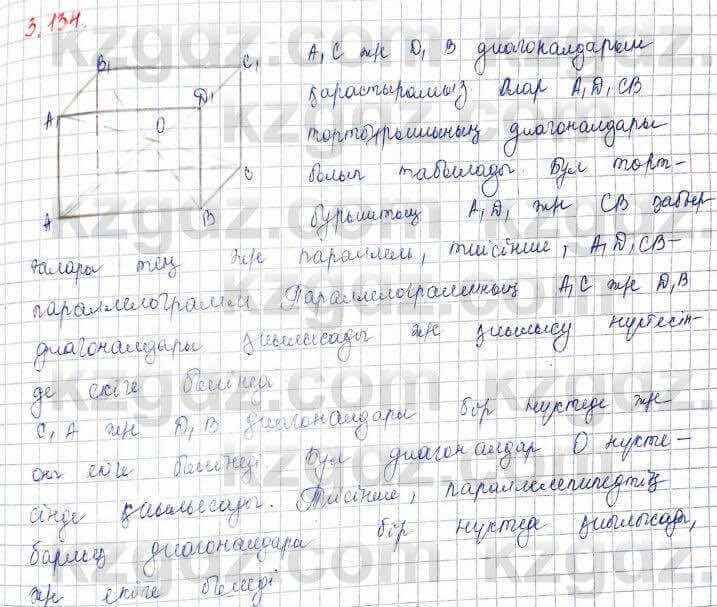 3.134.
B₁ C₁
A₁ D₁
O
C
A B
A₁C жне D₁B диагоналдарын
қарастырамыз Олар A₁D₁CB
төртбұрышының диагоналдары
болып табылады. Бұл төрт-
бұрыштың A₁D₁ жне CB қабыр-
ғалары тең жне параллель, тиісінше, A₁D₁CB-
параллелограмм Параллелограмның A₁C жне D₁B
диагоналдары қиылысады жне қиылысу нүктесін-
де екіге бөлінеді
C₁A жне D₁B диагоналдары бір нүктеде жне
екіге бөлінеді Бұл диагоналдар O нүкте-
сінде қиылысады. Тиісінше, параллелепипедтің
барлық диагоналдары бір нүктеде қиылысады,
жне екіге бөлінеді
kzgdz.com